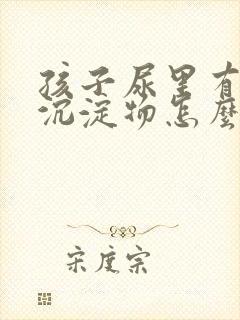 孩子尿里有
沉淀物怎麼
宋度宗